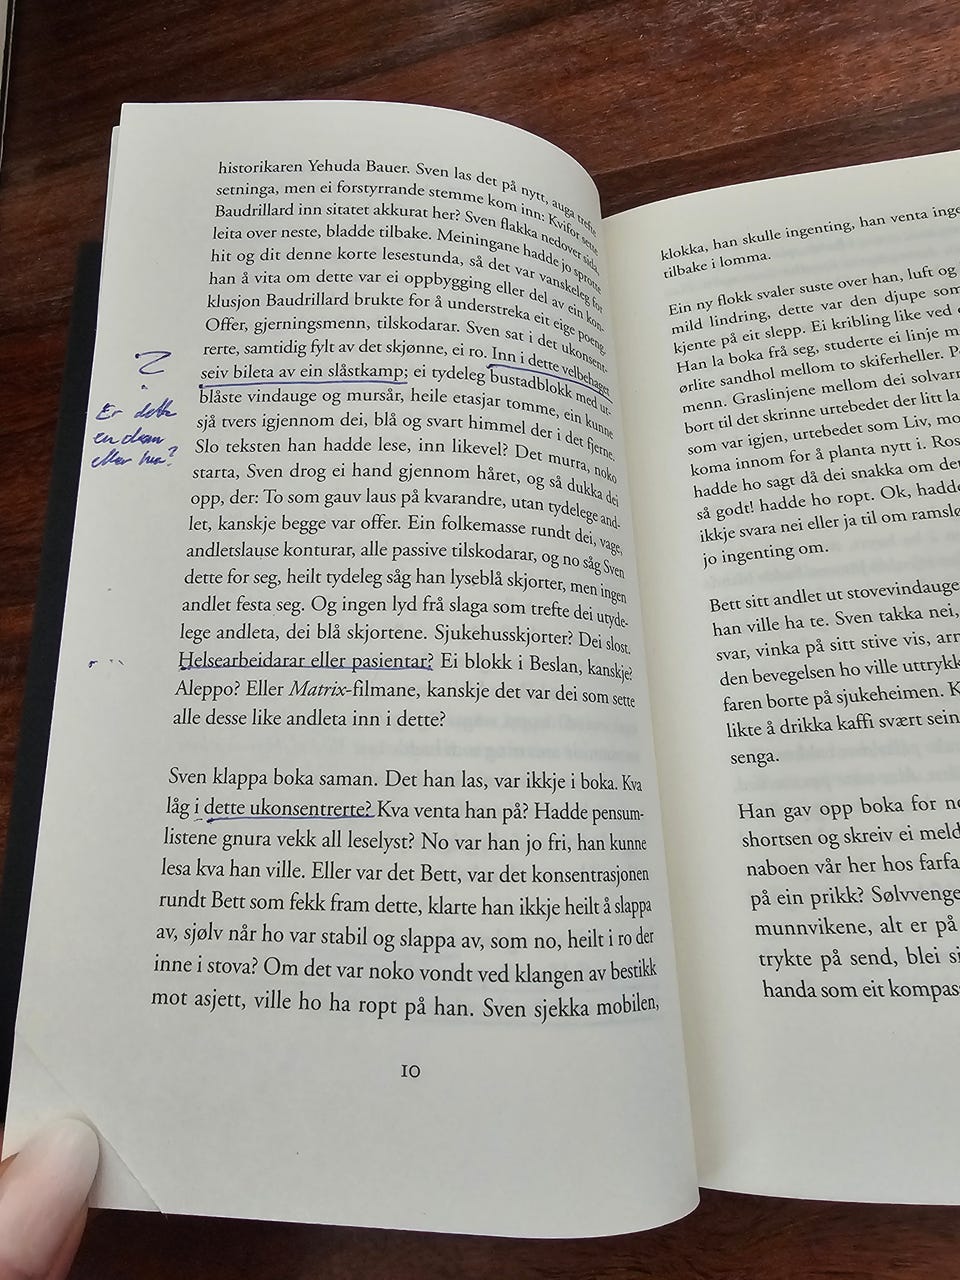 historikaren Yehuda Bauer. Sven las det på nytt, auga trefte
setninga, men ei forstyrrande stemme kom inn: Kvifor sette
Baudrillard inn sitatet akkurat her? Sven flakka nedover sida,
leita over neste, bladde tilbake. Meiningane hadde jo sprotte
hit og dit denne korte lesestunda, så det var vanskeleg for
han å vita om dette var ei oppbygging eller del av ein kon-
klusjon Baudrillard brukte for å understreka eit eige poeng.
Offer, gjerningsmenn, tilskodarar. Sven sat i det ukonsent-
rerte, samtidig fylt av det skjønne, ei ro. Inn i dette velbehaget
seiv bileta av ein slåstkamp; ei tydeleg bustadblokk med ut-
blåste vindauge og mursår, heile etasjar tomme, ein kunne
sjå tvers igjennom dei, blå og svart himmel der i det fjerne.
Slo teksten han hadde lese, inn likevel? Det murra, noko
starta, Sven drog ei hand gjennom håret, og så dukka dei
opp, der: To som gauv laus på kvarandre, utan tydelege and-
let, kanskje begge var offer. Ein folkemasse rundt dei, vage,
andletslause konturar, alle passive tilskodarar, og no såg Sven
dette for seg, heilt tydeleg såg han lyseblå skjorter, men ingen
andlet festa seg. Og ingen lyd frå slaga som trefte dei utyde-
lege andleta, dei blå skjortene. Sjukehusskjorter? Dei slost.
Helsearbeidarar eller pasientar? Ei blokk i Beslan, kanskje?
Aleppo? Eller Matrix-filmane, kanskje det var dei som sette
alle desse like andleta inn i dette?
Sven klappa boka saman. Det han las, var ikkje i boka. Kva
låg i dette ukonsentrerte? Kva venta han på? Hadde pensum-
listene gnura vekk all leselyst? No var han jo fri, han kunne
lesa kva han ville. Eller var det Bett, var det konsentrasjonen
rundt Bett som fekk fram dette, klarte han ikkje heilt å slappa
av, sjølv når ho var stabil og slappa av, som no, heilt i ro der
inne i stova? Om det var noko vondt ved klangen av bestikk
mot asjett, ville ho ha ropt på han. Sven sjekka mobilen,
10
?
Er dette
en drøm
eller hva?
klokka, han skulle ingenting, han venta
tilbake i lomma.
Ein ny flokk svaler suste over han, luft og
mild lindring, dette var den djupe som
kjente på eit slepp. Ei kribling like ved
Han la boka frå seg, studerte ei linje
ørlite sandhol mellom to skiferheller.
menn. Graslinjene mellom dei
bort til det skrinne urtebedet der litt
som var igjen, urtebedet som Liv,
koma innom for å planta nytt i.
hadde ho sagt då dei snakka om
så godt! hadde ho ropt. Ok,
ikkje svara nei eller ja til om
jo ingenting om.
Bett sitt andlet ut
han ville ha te. Sven takka nei,
svar, vinka på sitt stive vis,
den bevegelsen ho ville
faren borte på sjukeheimen.
likte å drikka kaffi svært
senga.
Han gav opp boka for
shortsen og skreiv ei
naboen vår her hos
på ein prikk?
munnvikene, alt er på
trykte på send, blei
handa som eit